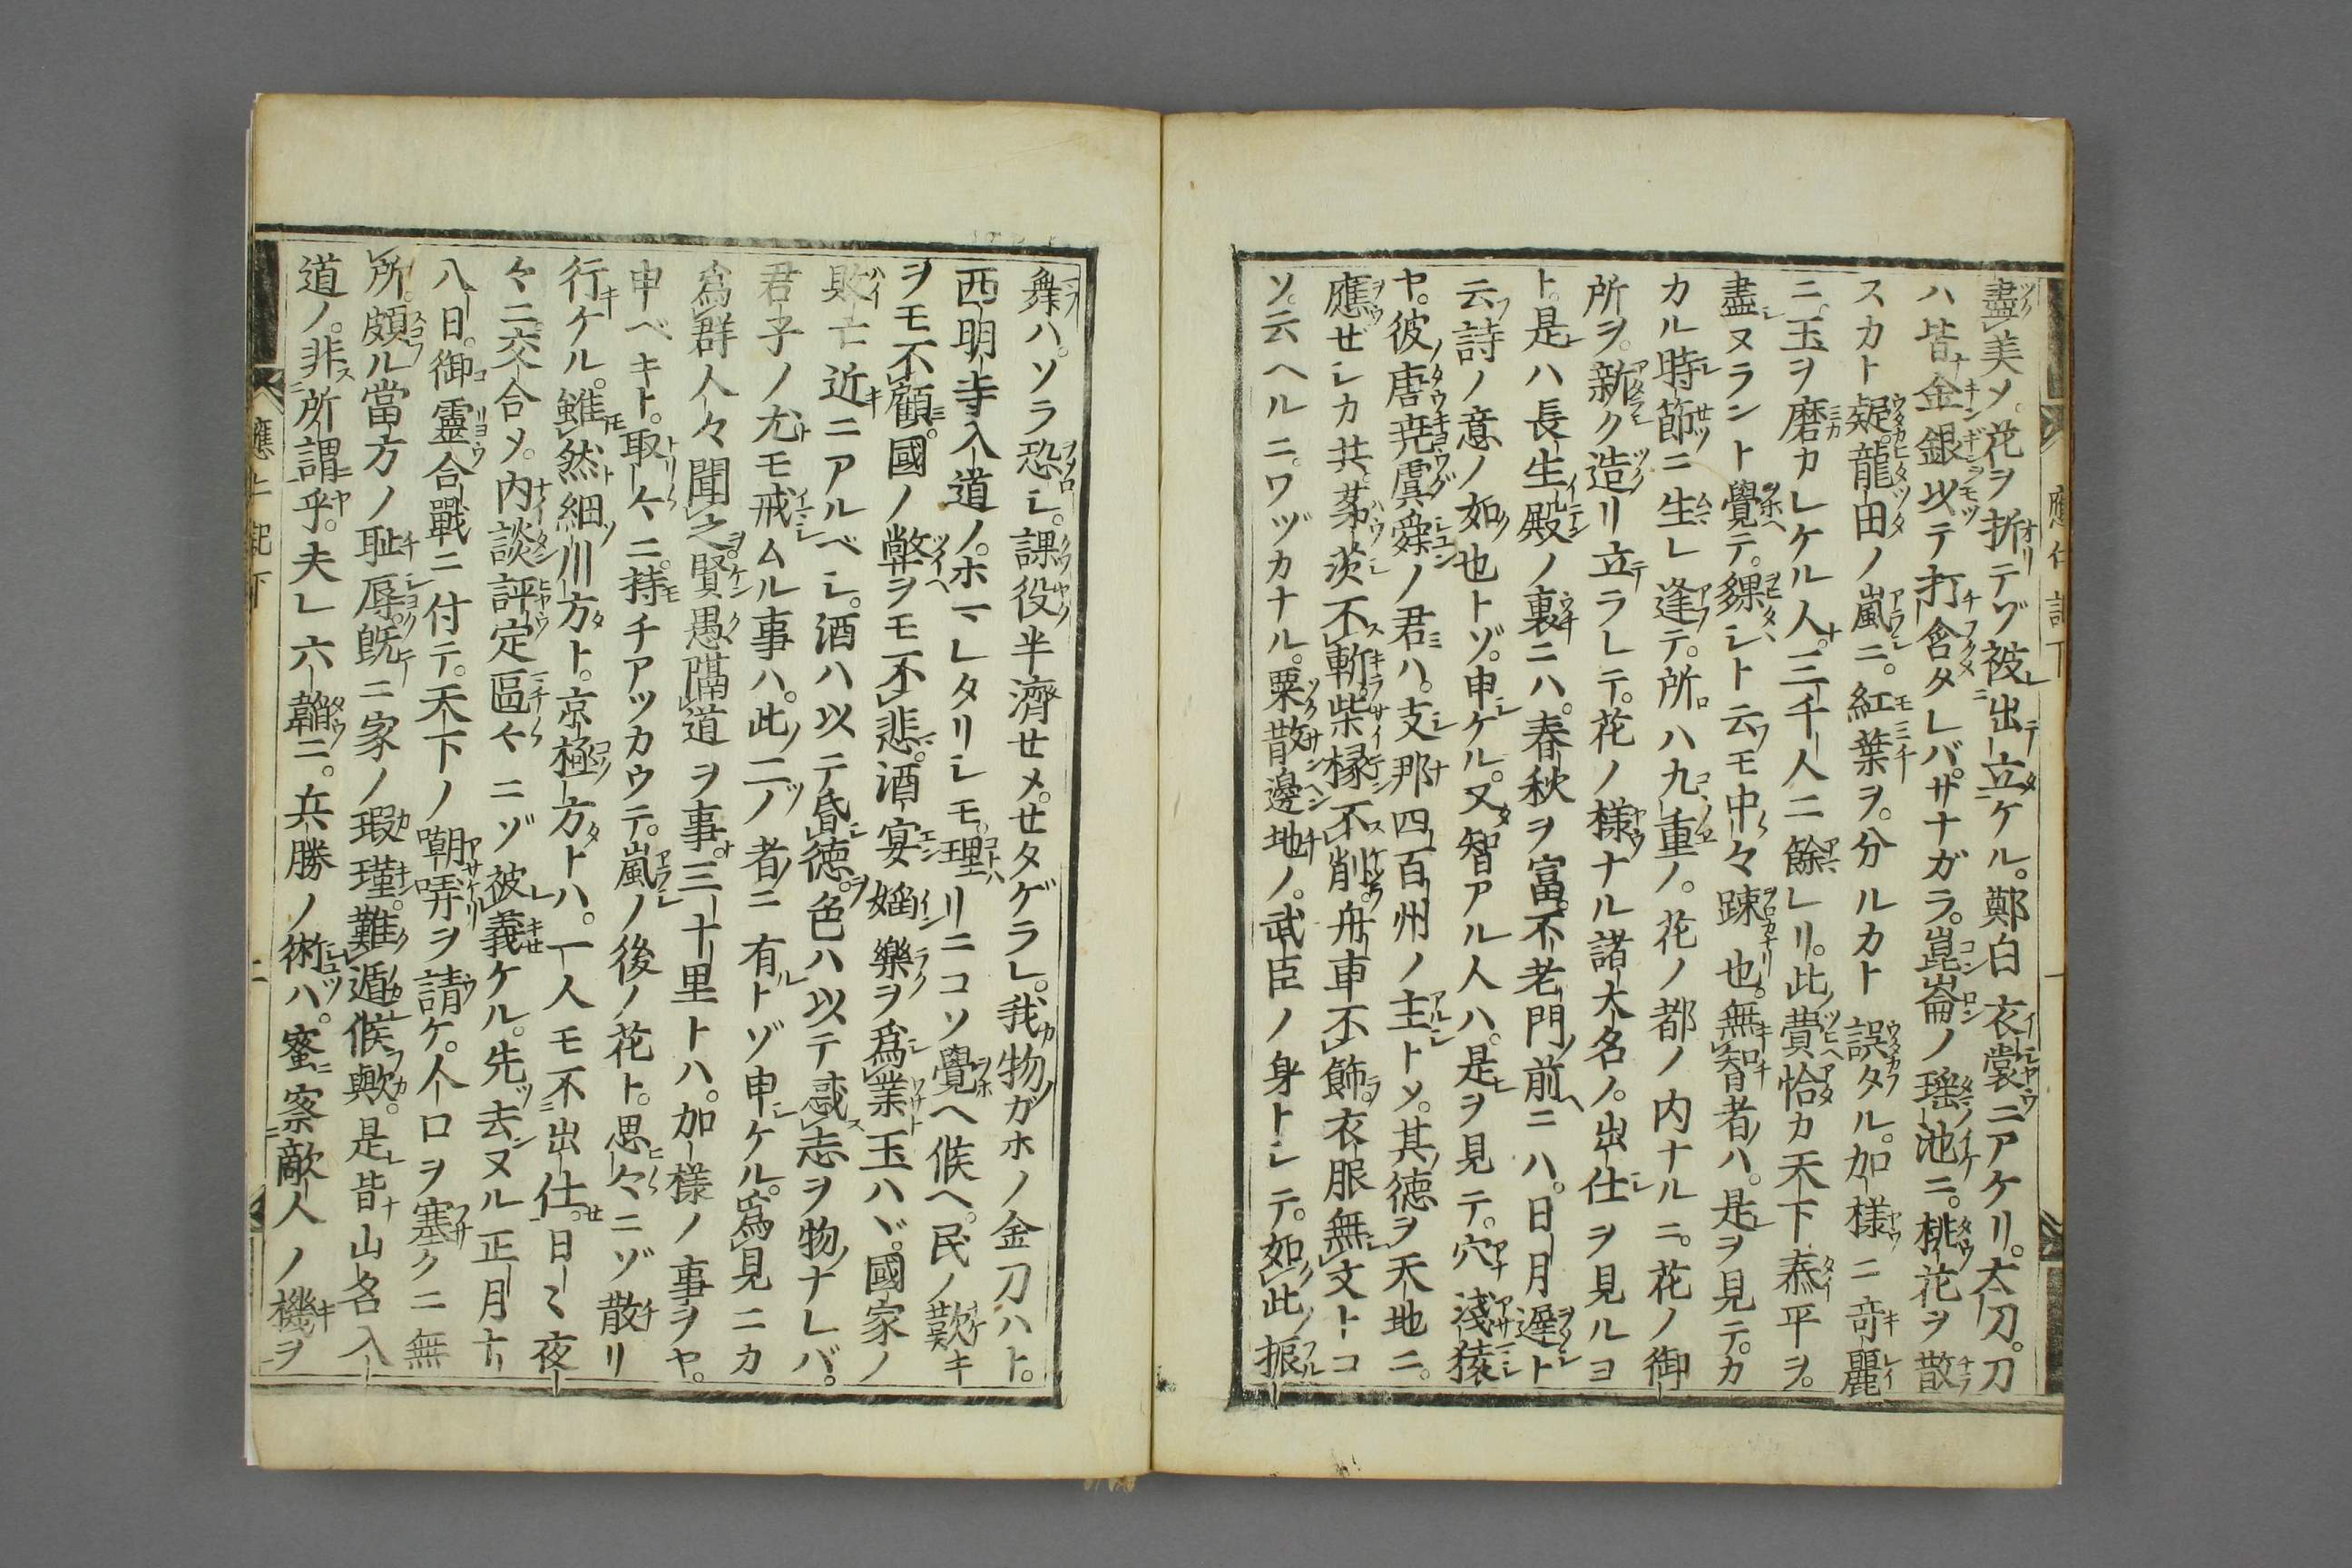 盡美メ。花ヲ折テゾ被出立ケル。鄭白衣裳ニアケリ。太刀。刀
ハ皆金銀以テ打含タレバ。サナガラ。崑崙ノ瑶池ニ。桃花ヲ散
スカト疑。龍田ノ嵐ニ。紅葉ヲ。分ルカト誤タル。加様ニ奇麗
ニ。玉ヲ磨カレケル人。三千人ニ餘レリ。此費恰カ天下泰平ヲ。
盡ヌラント覺テ。夥シト云モ中々踈也。無智者ハ。是ヲ見テ。カ
カル時節ニ生レ逢テ。所ハ九重ノ。花ノ都ノ内ナルニ。花ノ御
所ヲ。新ク造リ立ラレテ。花ノ様ナル諸大名ノ。出仕ヲ見ルヨ
ト。是ハ長生殿ノ裏ニハ。春秋ヲ富。不老門前ニハ。日月遲ト
云詩ノ意ノ如也トゾ。申ケル。又智アル人ハ。是ヲ見テ。穴淺猿
ヤ。彼唐尭虞舜ノ君ハ。支那四百州ノ主トメ。其徳ヲ天地ニ。
應ゼシカ共。茅茨不斬。柴椽不削。舟車不飾。衣服無文トコ
ソ。云ヘルニ。ワヅカナル。粟散邊地ノ。武臣ノ身トシテ。如此振
舞ハ。ソラ恐シ。課役半濟セメ。セタゲラレ。我物ガホノ金刀ハト。
西明寺入道ノ。ホマレタリシモ。理リニコソ覺ヘ候ヘ。民ノ歎キ
ヲモ不顧。國ノ弊ヲモ不悲。酒宴婬樂ヲ為業玉ハヾ。國家ノ
敗亡近ニアルベシ。酒ハ以テ昏徳。色ハ以テ惑志ヲ物ナレバ。
君子ノ尤モ戒ムル事ハ。此二ノ者ニ有トゾ申ケル。為見ニカ
為群人々聞之賢愚隔道ヲ事三十里トハ。加様ノ事ヲヤ。
申ベキト。取々ニ。持チアツカウテ。嵐ノ後ノ花ト。思々ニゾ散リ
行ケル。雖然細川方ト。京極方トハ。一人モ不出仕。日〻夜
々ニ交合メ。内談評定區々ニゾ被義ケル。先去ヌル正月十
八日。御靈合戰ニ付テ。天下ノ嘲哢ヲ請ケ。人口ヲ塞クニ無
所。頗ル當方ノ耻辱。既ニ家ノ瑕瑾。難遁候歟。是皆山名入
道ノ。非所謂乎。夫レ六韜ニ。兵勝ノ術ハ。蜜察敵人ノ機ヲ
應仁記下
一
應仁記下
二